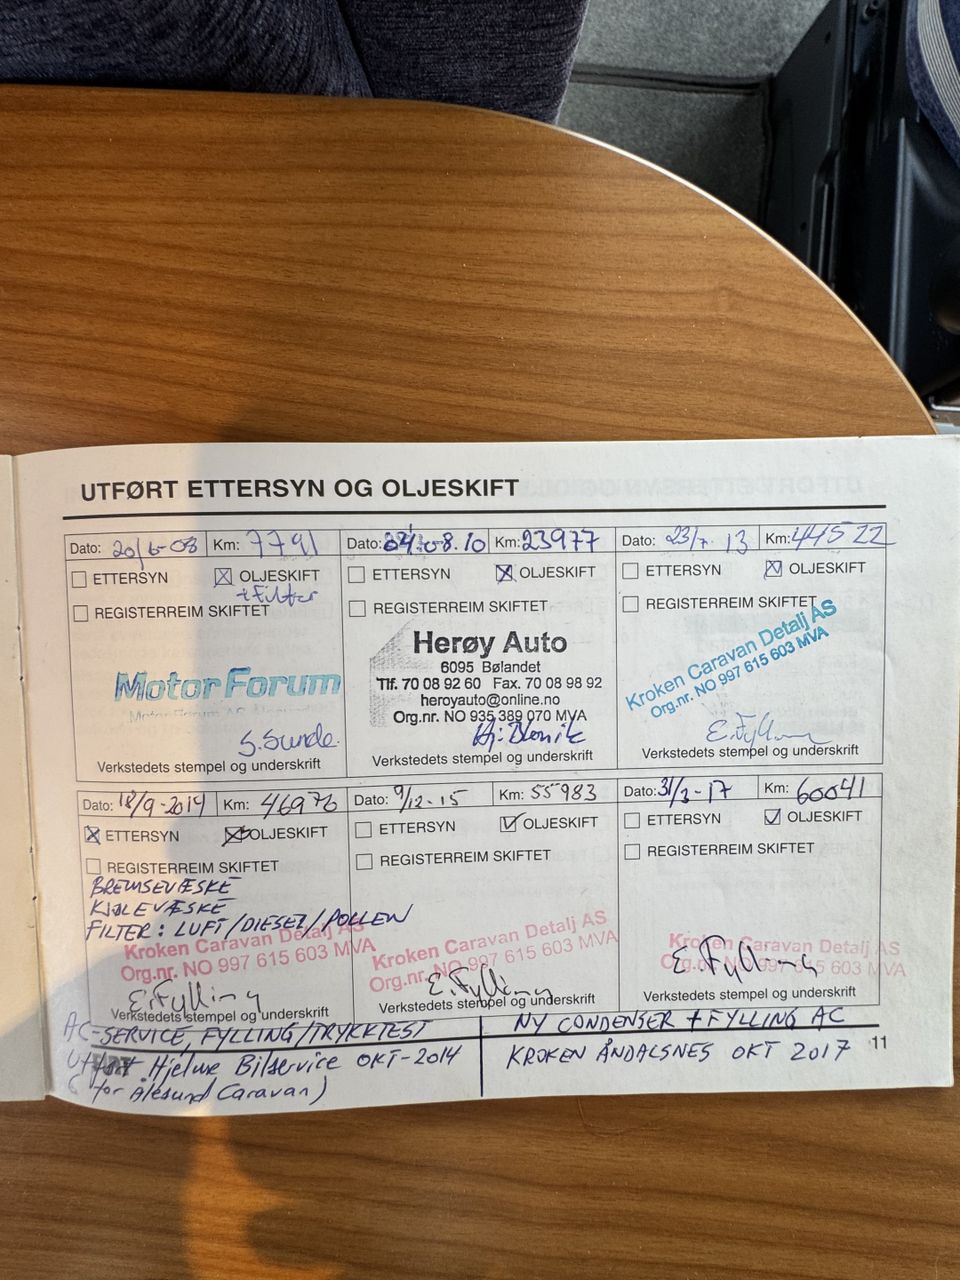 UTFØRT ETTERSYN OG OLJESKIFT
Dato: 20/6-08 Km: 7791
ETTERSYN OLJESKIFT
+ Filter
REGISTERREIM SKIFTET
Motor Forum
S. Sunde
Verkstedets stempel og underskrift
Dato: 04.08.10 Km: 23977
ETTERSYN OLJESKIFT
REGISTERREIM SKIFTET
Herøy Auto
6095 Bølandet
Tlf. 70 08 92 60 Fax. 70 08 98 92
heroyauto@online.no
Org.nr. NO 935 389 070 MVA
Verkstedets stempel og underskrift
Dato: 23/7-13 Km: 44522
ETTERSYN OLJESKIFT
REGISTERREIM SKIFTET
Kroken Caravan Detalj AS
Org.nr. NO 997 615 603 MVA
E. Fylling
Verkstedets stempel og underskrift
Dato: 18/9-2014 Km: 46976
ETTERSYN OLJESKIFT
REGISTERREIM SKIFTET
BREMSEVÆSKE
KJØLEVÆSKE
FILTER: LUFT/DIESEL/POLLEN
Kroken Caravan Detalj AS
Org.nr. NO 997 615 603 MVA
E. Fylling
Verkstedets stempel og underskrift
Dato: 9/12-15 Km: 55983
ETTERSYN OLJESKIFT
REGISTERREIM SKIFTET
Kroken Caravan Detalj AS
Org.nr. NO 997 615 603 MVA
E. Fylling
Verkstedets stempel og underskrift
Dato: 31/3-17 Km: 60041
ETTERSYN OLJESKIFT
REGISTERREIM SKIFTET
Kroken Caravan Detalj AS
Org.nr. NO 997 615 603 MVA
E. Fylling
Verkstedets stempel og underskrift
AC-SERVICE, FYLLING/TRYKKTEST
Utført Hjelme Bilservice OKT-2014
(for Ålesund Caravan)
NY CONDENSER + FYLLING AC
KROKEN ÅNDALSNES OKT 2017
11